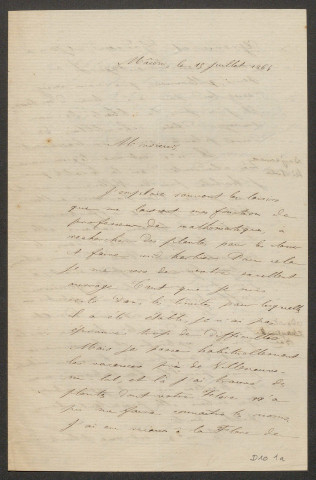 le 15 juillet 1866
Monsieur,
J'emploie souvent les loisirs
que me laissent mes fonctions de
professeur de mathématiques à
rechercher des plantes pour les
et faire mon herbier. Pour cela
je me sers de votre excellent
ouvrage tant que je me
dans les limites pour lesquelles
il a été établi, je n'ai pas
éprouvé trop de difficultés.
Mais je passe habituellement
les vacances près de Villeneuve
et là j'ai trouvé des
plantes dont votre Flore n'a
pu me faire connaître le nom.
J'ai eu recours à la Flore de